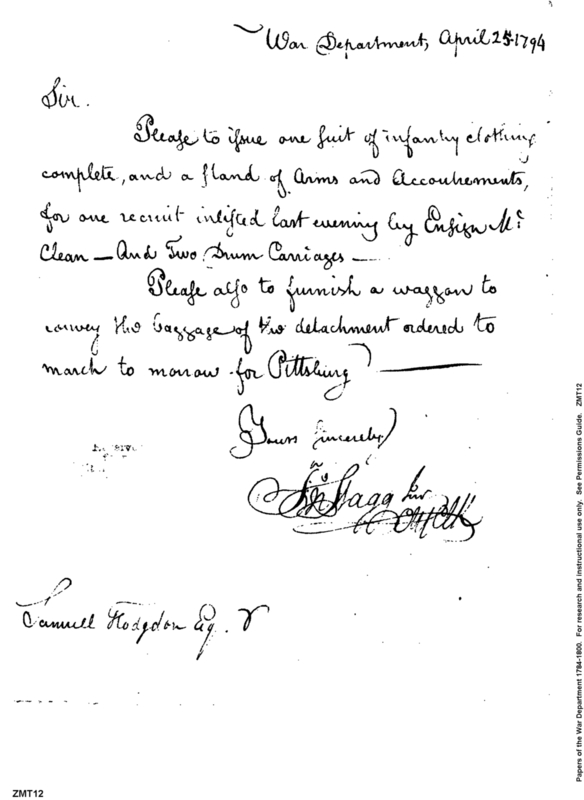 War Department, April 25 1794
Sir.
Please to issue one suit of infantry clothing
complete, and a stand of Arms and Accoutrements,
for one recruit inlisted last evening by Ensign Mc
Clean — And Two Drum Carriages —
Please also to furnish a waggon to
convey the baggage of the detachment ordered to
march to morrow for Pittsburg
Yours Sincerely
Jn Stagg Junr
Samuell Hodgdon Esq.
Papers of the War Department 1784-1800. For research and instructional use only. See Permissions Guide. ZMT12
ZMT12